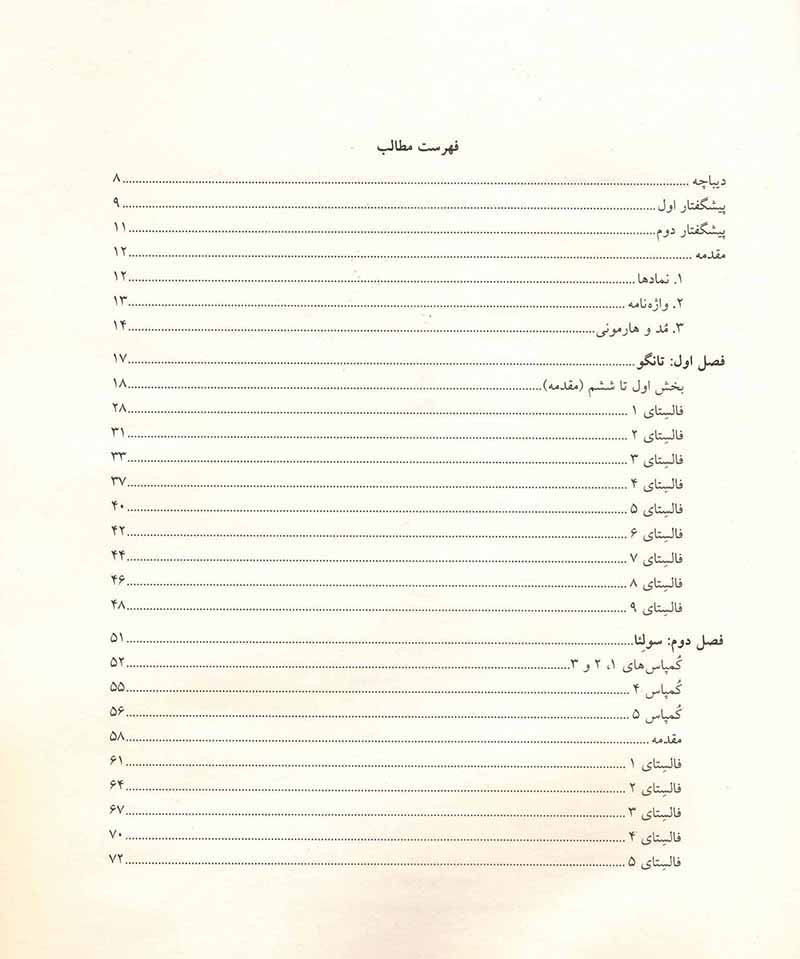 فهرست مطالب
دیباچه ........ ۸
پیشگفتار اول ........ ۹
پیشگفتار دوم ........ ۱۱
مقدمه ........ ۱۲
۱. نمادها ........ ۱۲
۲. واژه‌نامه ........ ۱۳
۳. مُد و هارمونی ........ ۱۴
فصل اول: تانگو ........ ۱۷
بخش اول تا ششم (مقدمه) ........ ۱۸
فالسِتای ۱ ........ ۲۸
فالسِتای ۲ ........ ۳۱
فالسِتای ۳ ........ ۳۳
فالسِتای ۴ ........ ۳۷
فالسِتای ۵ ........ ۴۰
فالسِتای ۶ ........ ۴۲
فالسِتای ۷ ........ ۴۴
فالسِتای ۸ ........ ۴۶
فالسِتای ۹ ........ ۴۸
فصل دوم: سولِئا ........ ۵۱
کُمپاس‌های ۱، ۲ و ۳ ........ ۵۲
کُمپاس ۴ ........ ۵۵
کُمپاس ۵ ........ ۵۶
مقدمه ........ ۵۸
فالسِتای ۱ ........ ۶۱
فالسِتای ۲ ........ ۶۴
فالسِتای ۳ ........ ۶۷
فالسِتای ۴ ........ ۷۰
فالسِتای ۵ ........ ۷۲